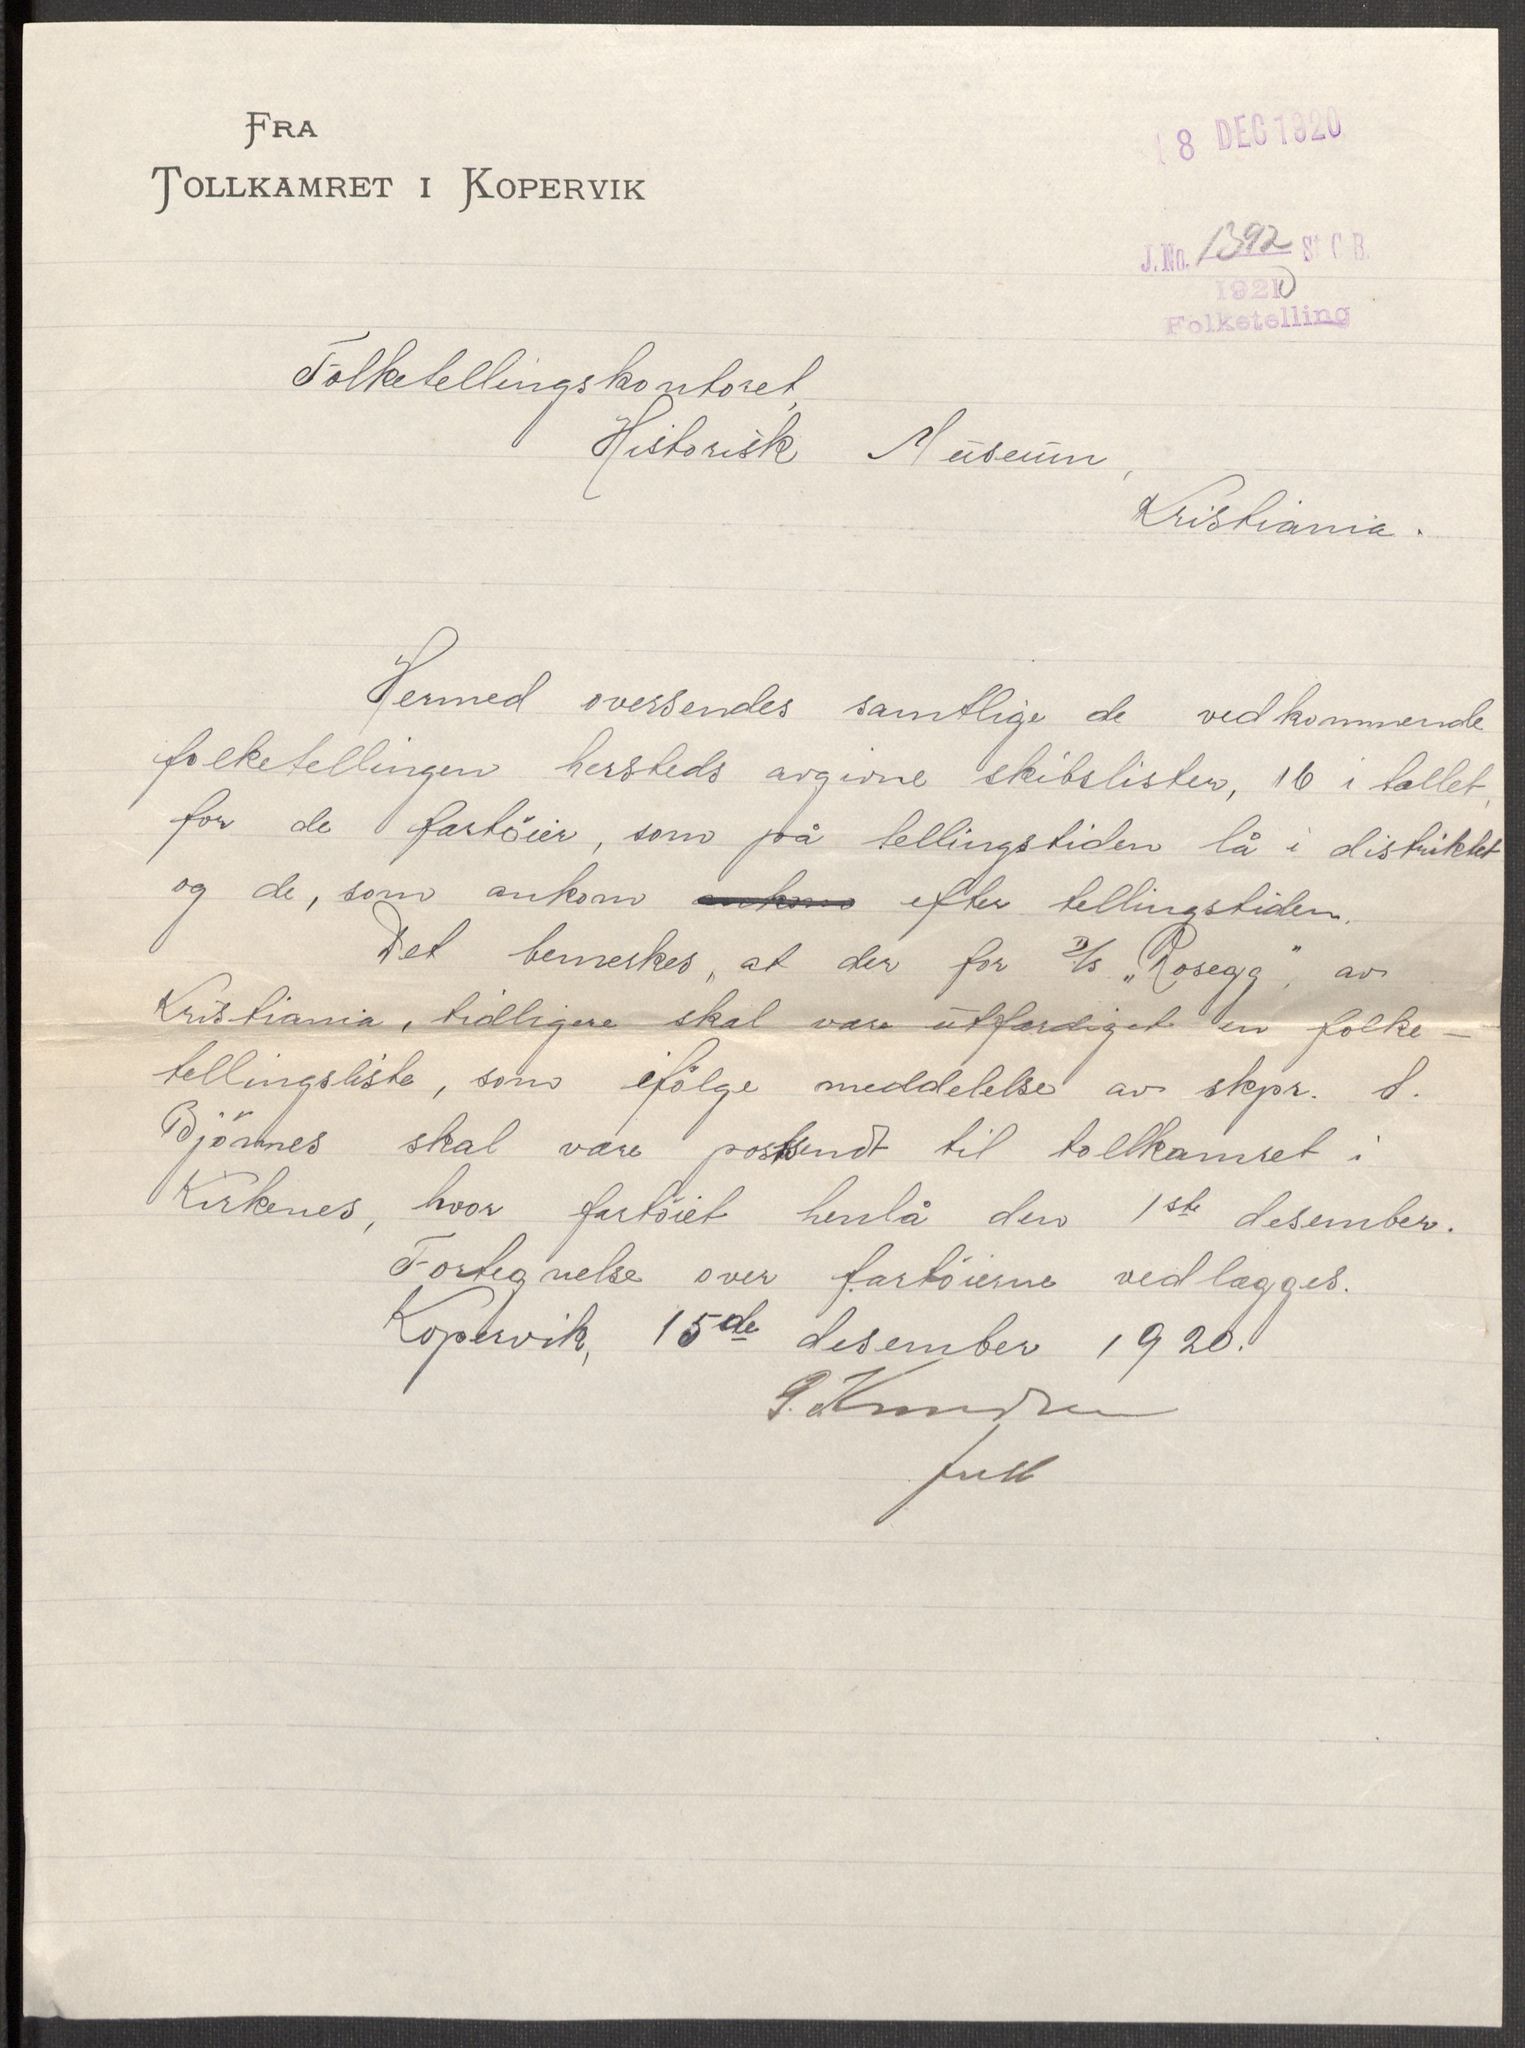 FRA
TOLLKAMRET I KOPERVIK
18 DEC 1920
J.No. 1392 St. C. B.
1920
Folketelling
Folketellingskontoret,
Historisk Museum,
Kristiania.
Hermed oversendes samtlige de vedkommende
folketellingen hersteds avgivne skibslister, 16 i tallet,
for de fartöier, som på tellingstiden lå i distriktet
og de, som ankom ankom efter tellingstiden.
Det bemerkes, at der for D/S „Rosegg", av
Kristiania, tidligere skal være utfærdiget en folke-
tellingsliste, som ifölge meddelelse av skpr. S.
Björnnes skal være postsendt til tollkamret i
Kirkenes, hvor fartöiet henlå den 1ste desember.
Fortegnelse over fartöierne vedlægges.
Kopervik, 15de desember 1920.
G. Knudsen